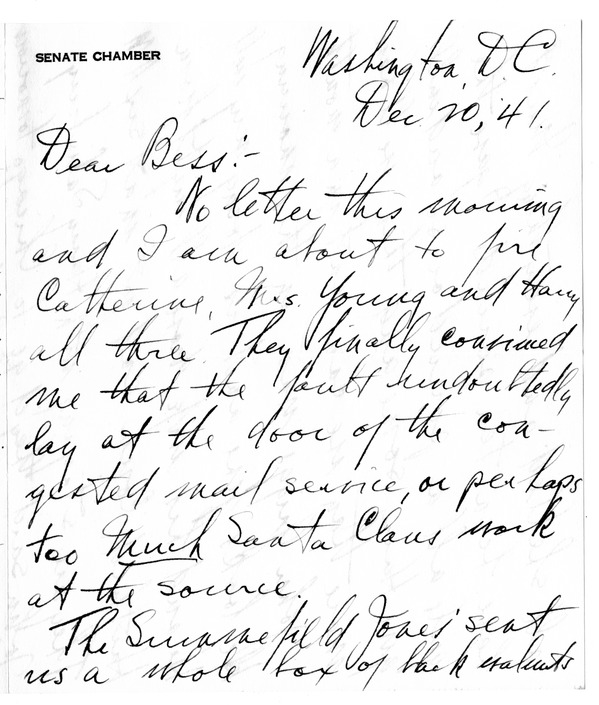 SENATE CHAMBER
Washington, D.C.
Dec 20, '41.
Dear Bess:-
No letter this morning
and I am about to fire
Catherine, Mrs. Young and Harry
all three. They finally convinced
me that the fault undoubtedly
lay at the door of the con-
gested mail service, or perhaps
too Much Santa Claus work
at the source.
The Summefield Jones' sent
us a whole box of black walnuts